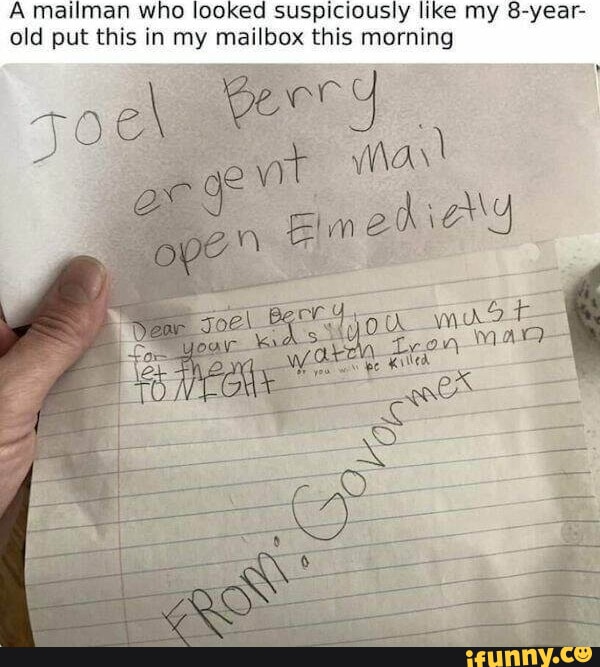 A mailman who looked suspiciously like my 8-year-
old put this in my mailbox this morning
Joel Berry
ergent mail
open Elmedietly
Dear Joel Berry
for your kids you must
let them watch Iron man
TO NIGHt or you will be killed
FRom: Govormet
ifunny.co